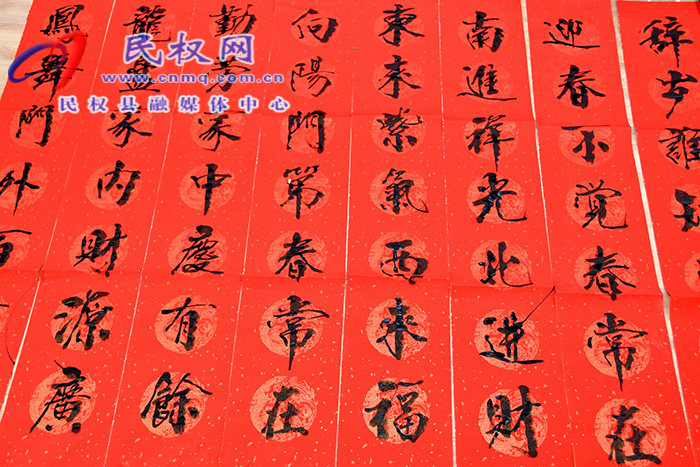 民权网
www.cnmq.com.cn
民权县融媒体中心
辞岁誰
迎春不觉春常在
南進祥光北进財
東来紫氣西来福
向陽門第春常在
勤劳家中慶有餘
龍盘家内財源廣
鳳舞門外百